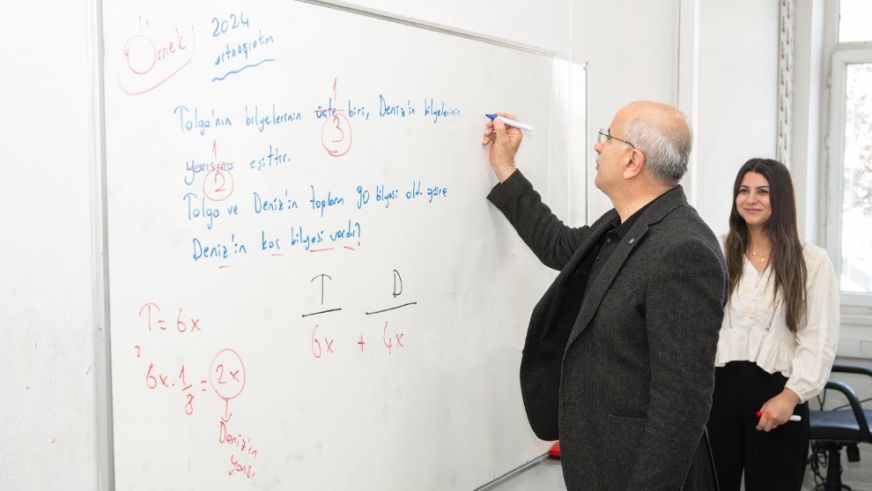 Örnek
2024
ortaöğretim
Tolga'nın bilyelerinin üçte biri, Deniz'in bilyelerinin
1
3
yarısına eşittir.
1
2
Tolga ve Deniz'in toplam 90 bilyesi old. göre
Deniz'in kaç bilyesi vardır?
T D
6x + 4x
T = 6x
6x . 1/3 = 2x
Deniz'in
yarısı